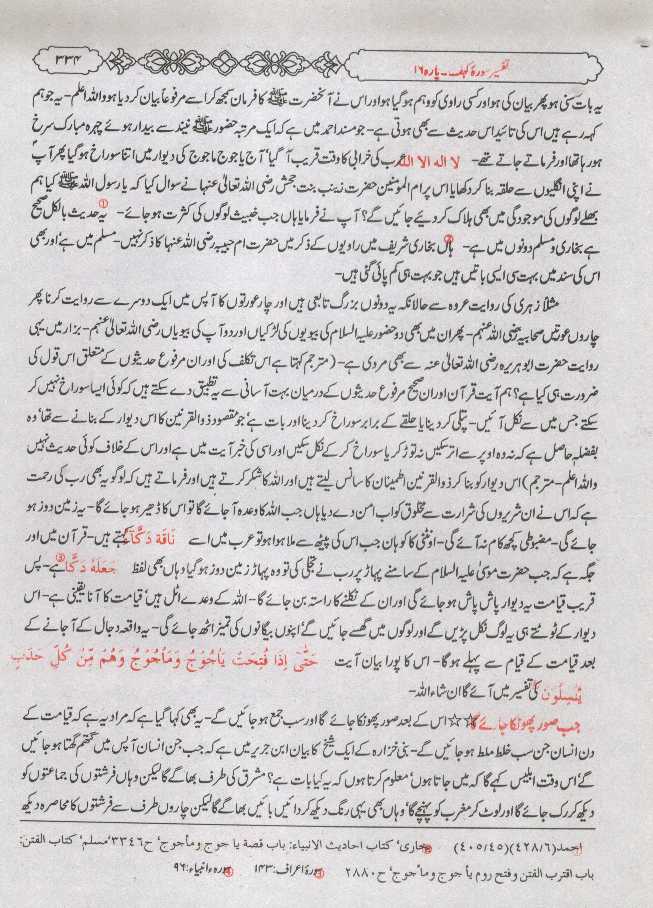 تفسیر سورۂ کہف۔ پارہ ۱۶
۳۳۴
یہ بات سنی ہو پھر بیان کی ہو اور کسی راوی کو وہم ہو گیا ہو اور اس نے آنحضرت ﷺ کا فرمان سمجھ کر اسے مرفوعاً بیان کر دیا ہو واللہ اعلم۔ یہ جو ہم
کہہ رہے ہیں اس کی تائید اس حدیث سے بھی ہوتی ہے۔ جو مسند احمد میں ہے کہ ایک مرتبہ حضور ﷺ نیند سے بیدار ہوئے چہرہ مبارک سرخ
ہو رہا تھا اور فرماتے جاتے تھے۔ لا الہ الا اللہ عرب کی خرابی کا وقت قریب آ گیا' آج یاجوج ماجوج کی دیوار میں اتنا سوراخ ہو گیا پھر آپ
نے اپنی انگلیوں سے حلقہ بنا کر دکھایا اس پر ام المؤمنین حضرت زینب بنت جحش رضی اللہ تعالیٰ عنہا نے سوال کیا کہ یا رسول اللہ ﷺ کیا ہم
بھلے لوگوں کی موجودگی میں بھی ہلاک کر دیئے جائیں گے؟ آپ نے فرمایا ہاں جب خبیث لوگوں کی کثرت ہو جائے۔ ① یہ حدیث بالکل صحیح
ہے بخاری و مسلم دونوں میں ہے۔ ② ہاں بخاری شریف میں راویوں کے ذکر میں حضرت ام حبیبہ رضی اللہ عنہا کا ذکر نہیں۔ مسلم میں ہے' اور بھی
اس کی سند میں بہت سی ایسی باتیں ہیں جو بہت ہی کم پائی گئی ہیں۔
مثلاً زہری کی روایت عروہ سے حالانکہ یہ دونوں بزرگ تابعی ہیں اور چار عورتوں کا آپس میں ایک دوسرے سے روایت کرنا پھر
چاروں عورتیں صحابیہ رضی اللہ عنہم۔ پھر ان میں بھی دو حضور علیہ السلام کی بیویوں کی لڑکیاں اور دو آپ کی بیویاں رضی اللہ تعالیٰ عنہم۔ بزار میں یہی
روایت حضرت ابو ہریرہ رضی اللہ تعالیٰ عنہ سے بھی مروی ہے۔ (مترجم کہتا ہے اس تکلف کی اور ان مرفوع حدیثوں کے متعلق اس قول کی
ضرورت ہی کیا ہے؟ ہم آیت قرآن اور ان صحیح مرفوع حدیثوں کے درمیان بہت آسانی سے یہ تطبیق دے سکتے ہیں کہ کوئی ایسا سوراخ نہیں کر
سکتے جس میں سے نکل آئیں۔ پتلی کر دینا یا حلقے کے برابر سوراخ کر دینا اور بات ہے' جو مقصود ذوالقرنین کا اس دیوار کے بنانے سے تھا' وہ
بفضلہٖ حاصل ہے کہ نہ وہ اوپر سے اتر سکیں نہ توڑ کر یا سوراخ کر کے نکل سکیں اور اسی کی خبر آیت میں ہے اور اس کے خلاف کوئی حدیث نہیں
واللہ اعلم۔ مترجم) اس دیوار کو بنا کر ذوالقرنین اطمینان کا سانس لیتے ہیں اور اللہ کا شکر کرتے ہیں اور فرماتے ہیں کہ لوگو یہ بھی رب کی رحمت
ہے کہ اس نے ان شریروں کی شرارت سے مخلوق کو اب امن دے دیا ہاں جب اللہ کا وعدہ آ جائے گا تو اس کا ڈھیر ہو جائے گا۔ یہ زمین دوز ہو
جائے گی۔ مضبوطی کچھ کام نہ آئے گی۔ اونٹنی کا کوہان جب اس کی پیٹھ سے ملا ہوا ہو تو عرب میں اسے ناقۃ دکآء کہتے ہیں۔ قرآن میں اور
جگہ ہے کہ جب حضرت موسیٰ علیہ السلام کے سامنے پہاڑ پر رب نے تجلی کی تو وہ پہاڑ زمین دوز ہو گیا وہاں بھی لفظ جَعَلَهٗ دَكًّا ③ ہے۔ پس
قریب قیامت یہ دیوار پاش پاش ہو جائے گی اور ان کے نکلنے کا راستہ بن جائے گا۔ اللہ کے وعدے اٹل ہیں' قیامت کا آنا یقینی ہے۔ اس
دیوار کے ٹوٹتے ہی یہ لوگ نکل پڑیں گے اور لوگوں میں گھس جائیں گے' اپنوں بیگانوں کی تمیز اٹھ جائے گی۔ یہ واقعہ دجال کے آ جانے کے
بعد قیامت کے قیام سے پہلے ہوگا۔ اس کا پورا بیان آیت حَتّٰی اِذَا فُتِحَتْ یَاْجُوْجُ وَمَاْجُوْجُ وَهُمْ مِّنْ كُلِّ حَدَبٍ
یَّنْسِلُوْنَ ④ کی تفسیر میں آئے گا ان شاء اللہ۔
جب صور پھونکا جائے گا ☆☆ اس کے بعد صور پھونکا جائے گا اور سب جمع ہو جائیں گے۔ یہ بھی کہا گیا ہے کہ مراد یہ ہے کہ قیامت کے
دن انسان جن سب خلط ملط ہو جائیں گے۔ بنی خزارہ کے ایک شیخ کا بیان ابن جریر میں ہے کہ جب جن انسان آپس میں گتھم گتھا ہو جائیں
گے' اس وقت ابلیس کہے گا کہ میں جاتا ہوں' معلوم کرتا ہوں کہ یہ کیا بات ہے؟ مشرق کی طرف بھاگے گا لیکن وہاں فرشتوں کی جماعتوں کو
دیکھ کر رک جائے گا اور لوٹ کر مغرب کو پہنچے گا' وہاں بھی یہی رنگ دیکھ کر دائیں بائیں بھاگے گا لیکن چاروں طرف سے فرشتوں کا محاصرہ دیکھ
① احمد (۴۲۸/۶) (۴۰۵/۴۵) ② بخاری' کتاب احادیث الانبیاء: باب قصة یاجوج وماجوج' ح ۳۳۴۶' مسلم' کتاب الفتن:
باب اقترب الفتن وفتح روم یأجوج وماجوج' ح ۲۸۸۰ ③ سورۂ اعراف: ۱۴۳ ④ سورۂ انبیاء: ۹۶